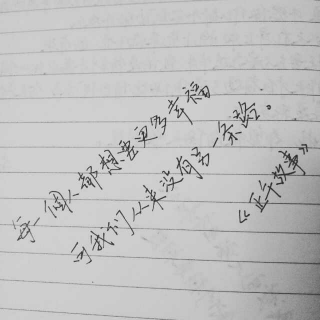 每一個人都想要更多幸福
可我们从来没有另一条路。
《正午故事》